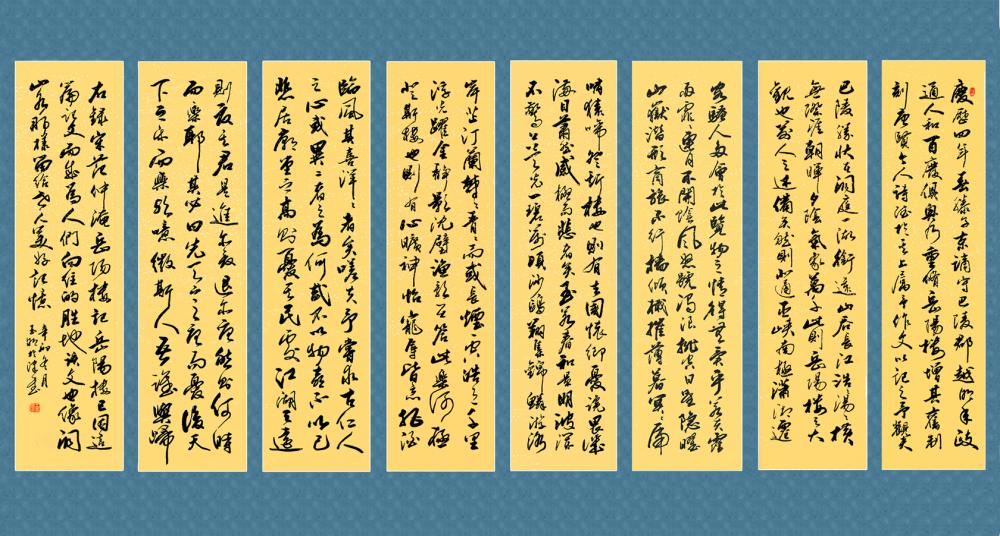 慶歷四年春滕子京謫守巴陵郡越明年政
通人和百廢俱興乃重脩岳陽樓增其舊制
刻唐賢今人詩賦於其上属予作文以記之予觀夫
巴陵勝状在洞庭一湖銜遠山吞長江浩〻湯〻橫
無際涯朝暉夕陰氣象萬千此則岳陽樓之大
觀也前人之述備矣然則北通巫峽南極瀟湘遷
客騷人多會於此覽物之情得無異乎若夫霪
雨霏〻連月不開陰風怒號濁浪排空日星隱曜
山嶽潛形商旅不行檣傾楫摧薄暮冥〻虎
嘯猿啼登斯樓也則有去國懷鄉憂讒畏譏
滿目蕭然感極而悲者矣至若春和景明波瀾
不驚上下天光一碧萬頃沙鷗翔集錦鱗游泳
岸芷汀蘭郁〻青〻而或長煙一空皓月千里
浮光躍金靜影沈璧漁歌互答此樂何極
登斯樓也則有心曠神怡寵辱皆忘把酒
臨風其喜洋〻者矣嗟夫予嘗求古仁人
之心或異二者之為何哉不以物喜不以己
悲居廟堂之高則憂其民處江湖之遠
則憂其君是進亦憂退亦憂然則何時
而樂耶其必曰先天下之憂而憂後天
下之樂而樂歟噫微斯人吾誰與歸
右錄宋范仲淹岳陽樓記岳陽樓已因這
篇文而成為人們向往的勝地該文也像
那樣留給後人美好記憶
辛卯冬月